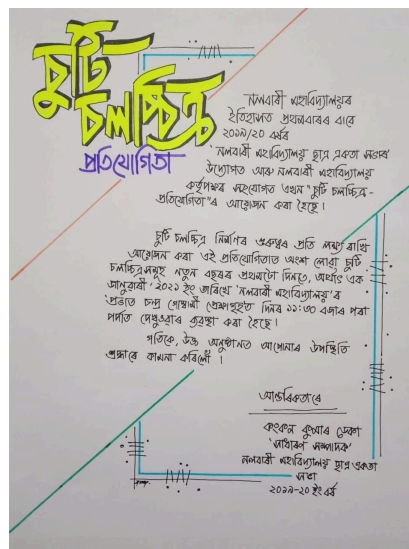 চুটি
চলচ্চিত্ৰ
প্ৰতিযোগিতা
নলবাৰী মহাবিদ্যালয়ৰ
ইতিহাসত প্ৰথমবাৰৰ বাবে
২০১৯/২০ বৰ্ষৰ
'নলবাৰী মহাবিদ্যালয় ছাত্ৰ একতা সভাৰ'
উদ্যোগত আৰু নলবাৰী মহাবিদ্যালয়
কৰ্তৃপক্ষৰ সহযোগত এখন "চুটি চলচ্চিত্ৰ -
প্ৰতিযোগিতা"ৰ আয়োজন কৰা হৈছে।
চুটি চলচ্চিত্ৰ নিৰ্মাণৰ গুৰুত্বৰ প্ৰতি লক্ষ্য ৰাখি
আয়োজন কৰা এই প্ৰতিযোগিতাত অংশ লোৱা চুটি
চলচ্চিত্ৰসমূহ নতুন বছৰৰ প্ৰথমটো দিনতে, অৰ্থাৎ এক
জানুৱাৰী' ২০২১ ইং তাৰিখে 'নলবাৰী মহাবিদ্যালয়'ৰ
'প্ৰভাত চন্দ্ৰ গোস্বামী প্ৰেক্ষাগৃহ'ত দিনৰ ১১:৩০ বজাৰ পৰা
পৰ্দাত দেখুওৱাৰ ব্যৱস্থা কৰা হৈছে।
গতিকে, উক্ত অনুষ্ঠানত আপোনাৰ উপস্থিতি
শ্ৰদ্ধাৰে কামনা কৰিলোঁ।
আন্তৰিকতাৰে
কংকন কুমাৰ ডেকা
'সাধাৰণ সম্পাদক'
নলবাৰী মহাবিদ্যালয় ছাত্ৰ একতা
সভা
২০১৯-২০ ইং বৰ্ষ